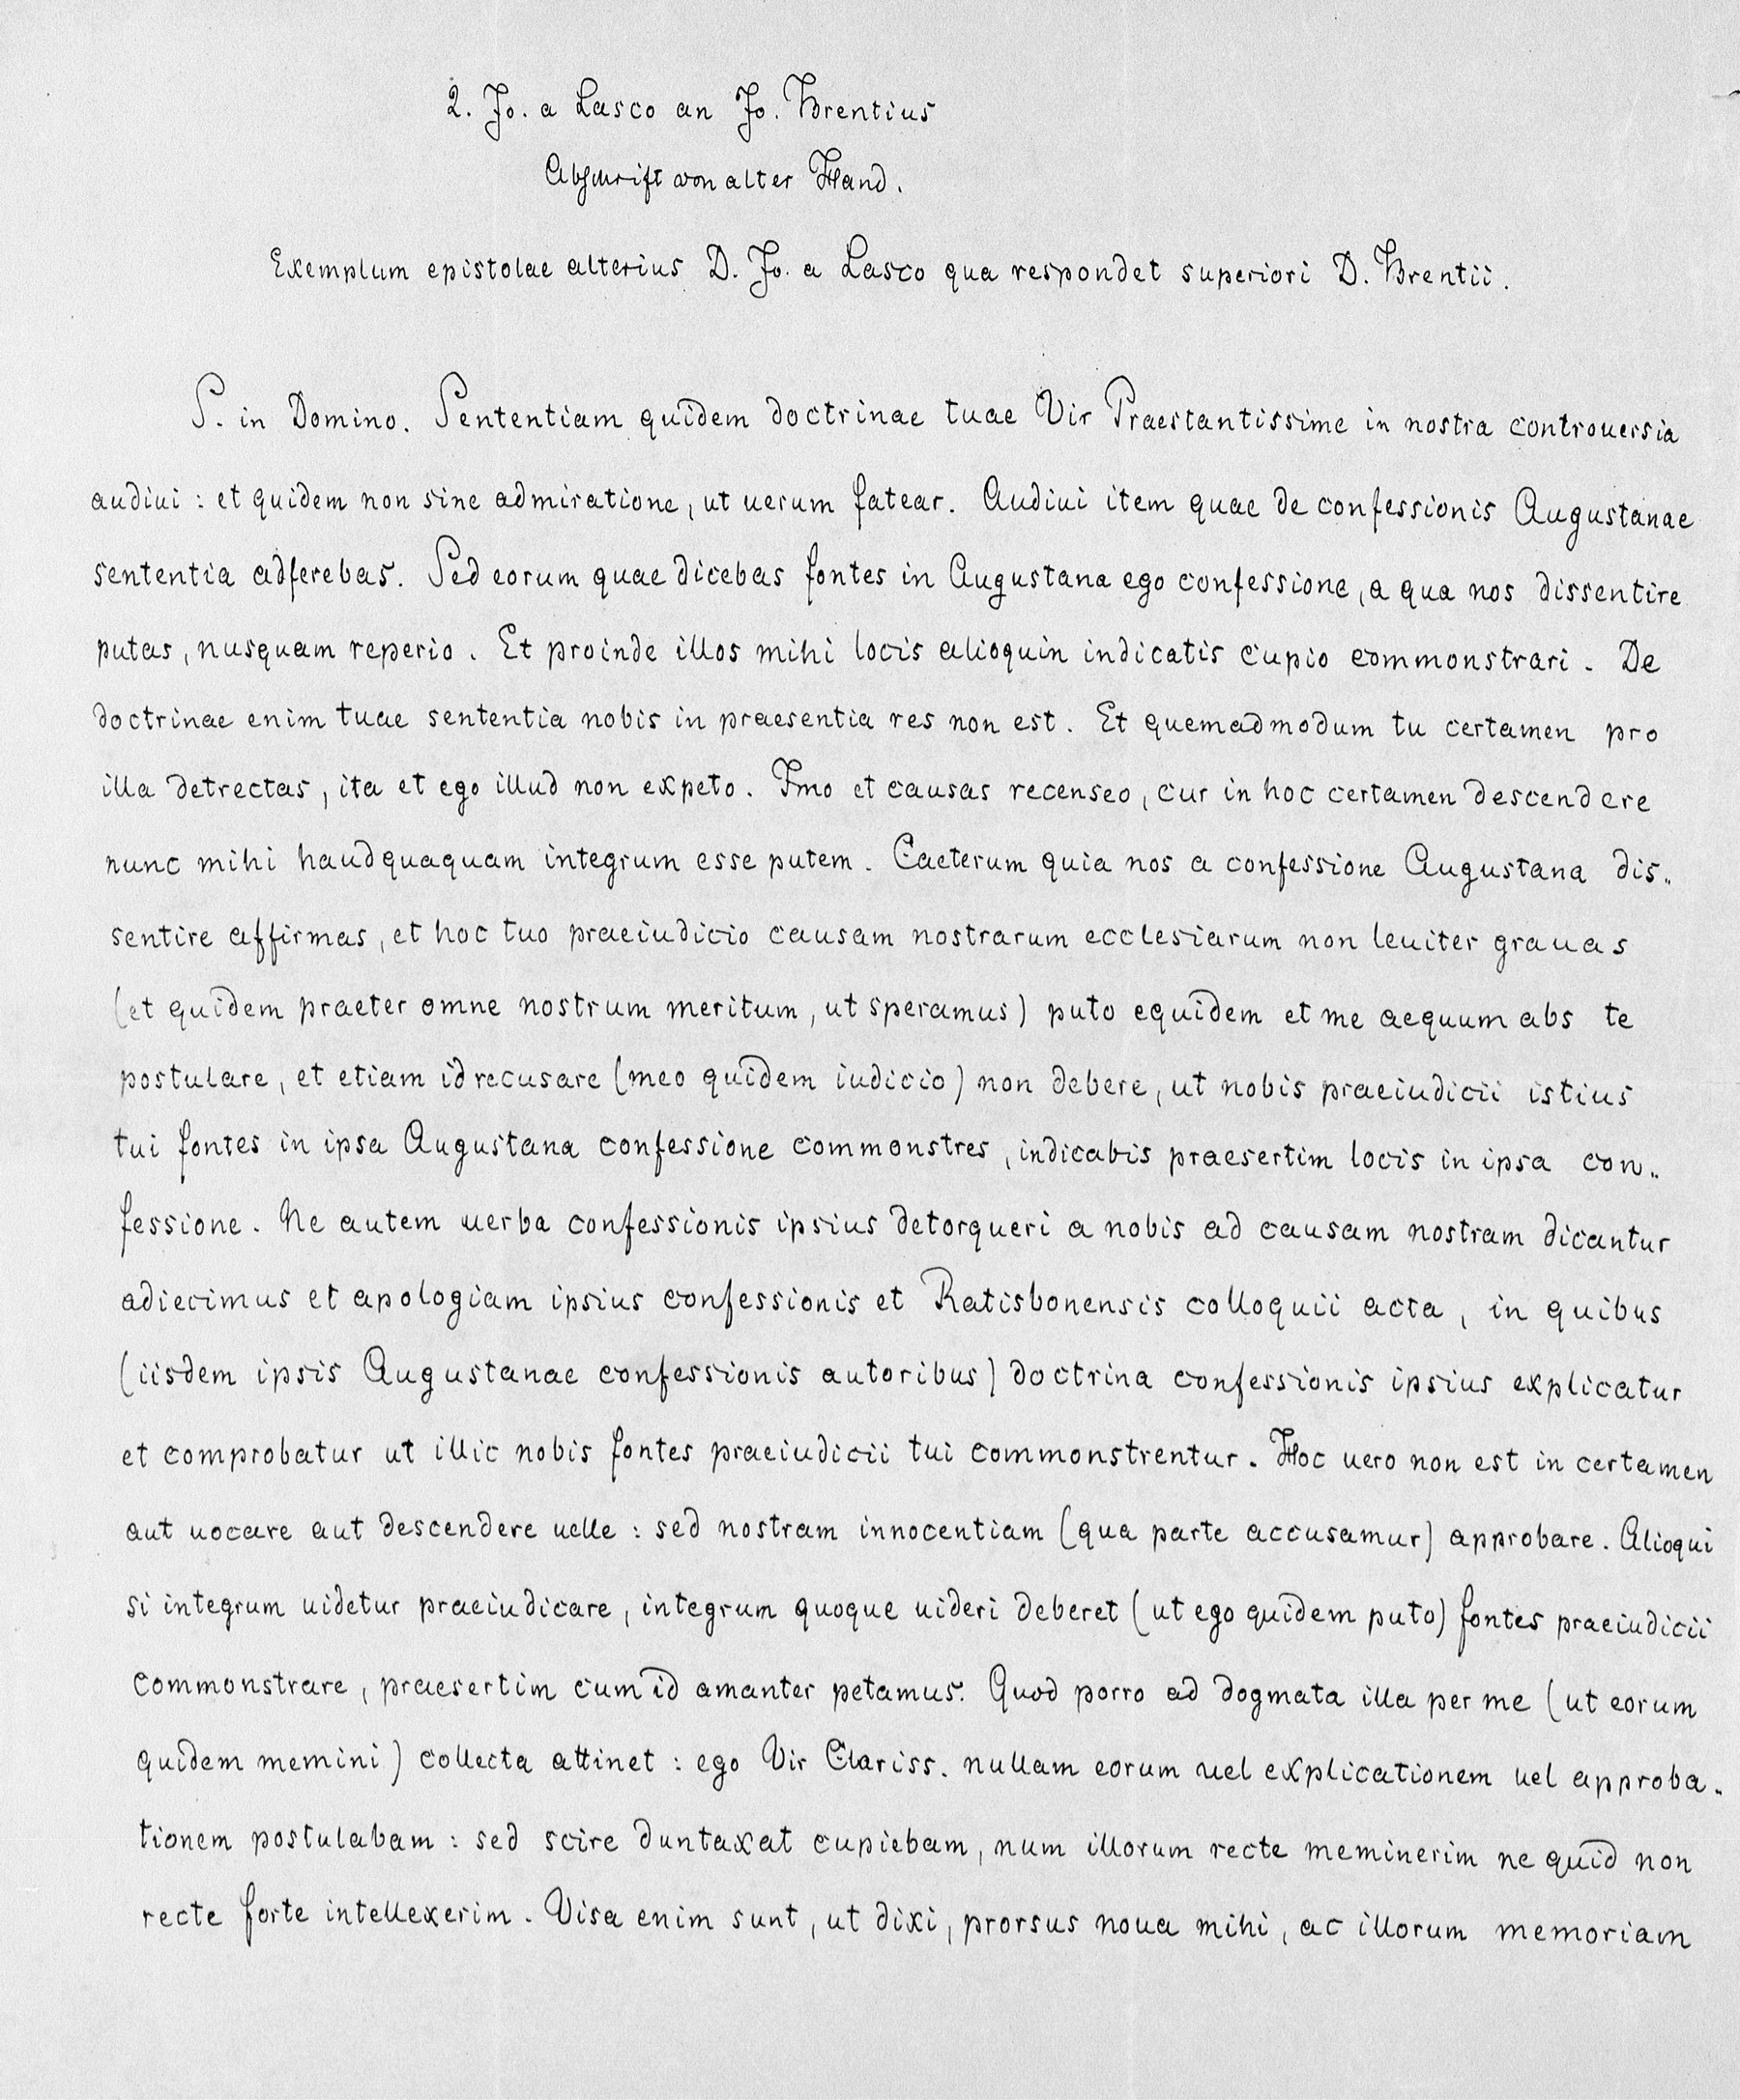 2. Jo. a Lasco an Jo. Brentius
Abschrift von alter Hand.
Exemplum epistolae alterius D. Jo. a Lasco qua respondet superiori D. Brentii.
S. in Domino. Sententiam quidem doctrinae tuae Vir Praestantissime in nostra controuersia
audiui : et quidem non sine admiratione, ut uerum fatear. Audiui item quae de confessionis Augustanae
sententia adferebas. Sed eorum quae dicebas fontes in Augustana ego confessione, a qua nos dissentire
putas, nusquam reperio. Et proinde illos mihi locis alioquin indicatis cupio commonstrari. De
doctrinae enim tuae sententia nobis in praesentia res non est. Et quemadmodum tu certamen pro
illa detrectas, ita et ego illud non expeto. Imo et causas recenseo, cur in hoc certamen descendere
nunc mihi haudquaquam integrum esse putem. Caeterum quia nos a confessione Augustana dis„
sentire affirmas, et hoc tuo praeiudicio causam nostrarum ecclesiarum non leuiter grauas
(et quidem praeter omne nostrum meritum, ut speramus) puto equidem et me aequum abs te
postulare, et etiam id recusare (meo quidem iudicio) non debere, ut nobis praeiudicii istius
tui fontes in ipsa Augustana confessione commonstres, indicabis praesertim locis in ipsa con„
fessione. Ne autem uerba confessionis ipsius detorqueri a nobis ad causam nostram dicantur
adiecimus et apologiam ipsius confessionis et Ratisbonensis colloquii acta, in quibus
(iisdem ipsis Augustanae confessionis autoribus) doctrina confessionis ipsius explicatur
et comprobatur ut illic nobis fontes praeiudicii tui commonstrentur. Hoc uero non est in certamen
aut uocare aut descendere uelle : sed nostram innocentiam (qua parte accusamur) approbare. Alioqui
si integrum uidetur praeiudicare, integrum quoque uideri deberet (ut ego quidem puto) fontes praeiudicii
commonstrare, praesertim cum id amanter petamus. Quod porro ad dogmata illa per me (ut eorum
quidem memini) collecta attinet : ego Vir Clariss. nullam eorum uel explicationem uel approba„
tionem postulabam : sed scire duntaxat cupiebam, num illorum recte meminerim ne quid non
recte forte intellexerim. Visa enim sunt, ut dixi, prorsus noua mihi, ac illorum memoriam